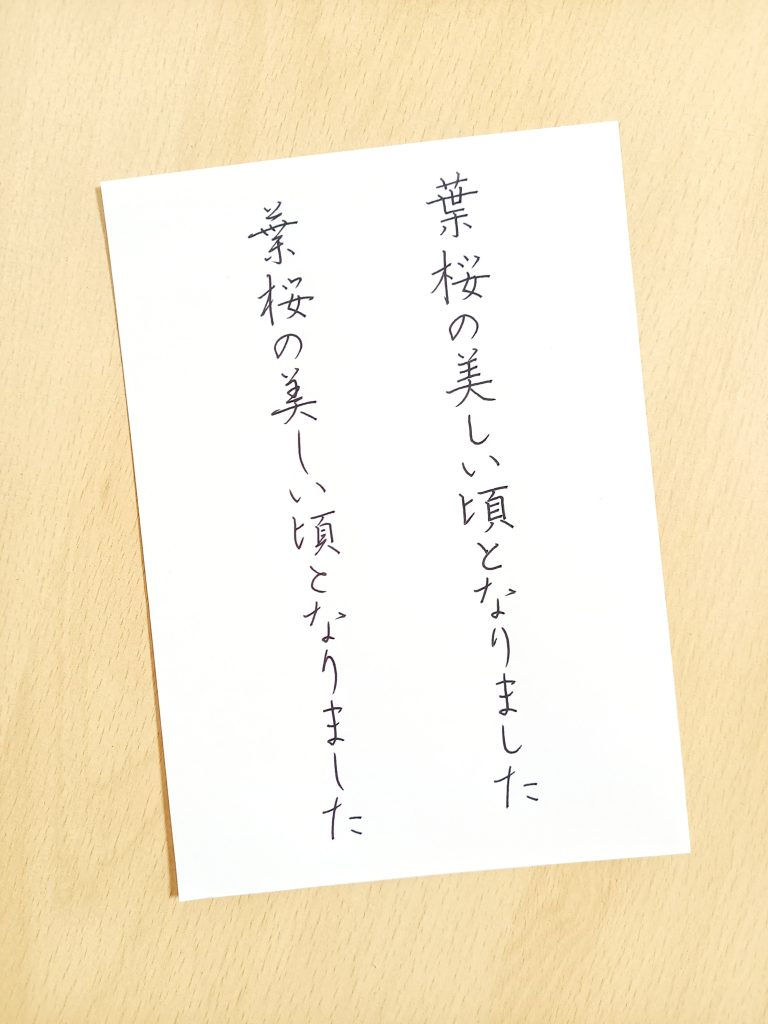 葉桜の美しい頃となりました
葉桜の美しい頃となりました